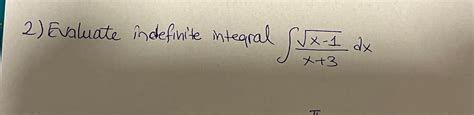 2) Evaluate indefinite integral ∫ √(x-1)/(x+3) dx